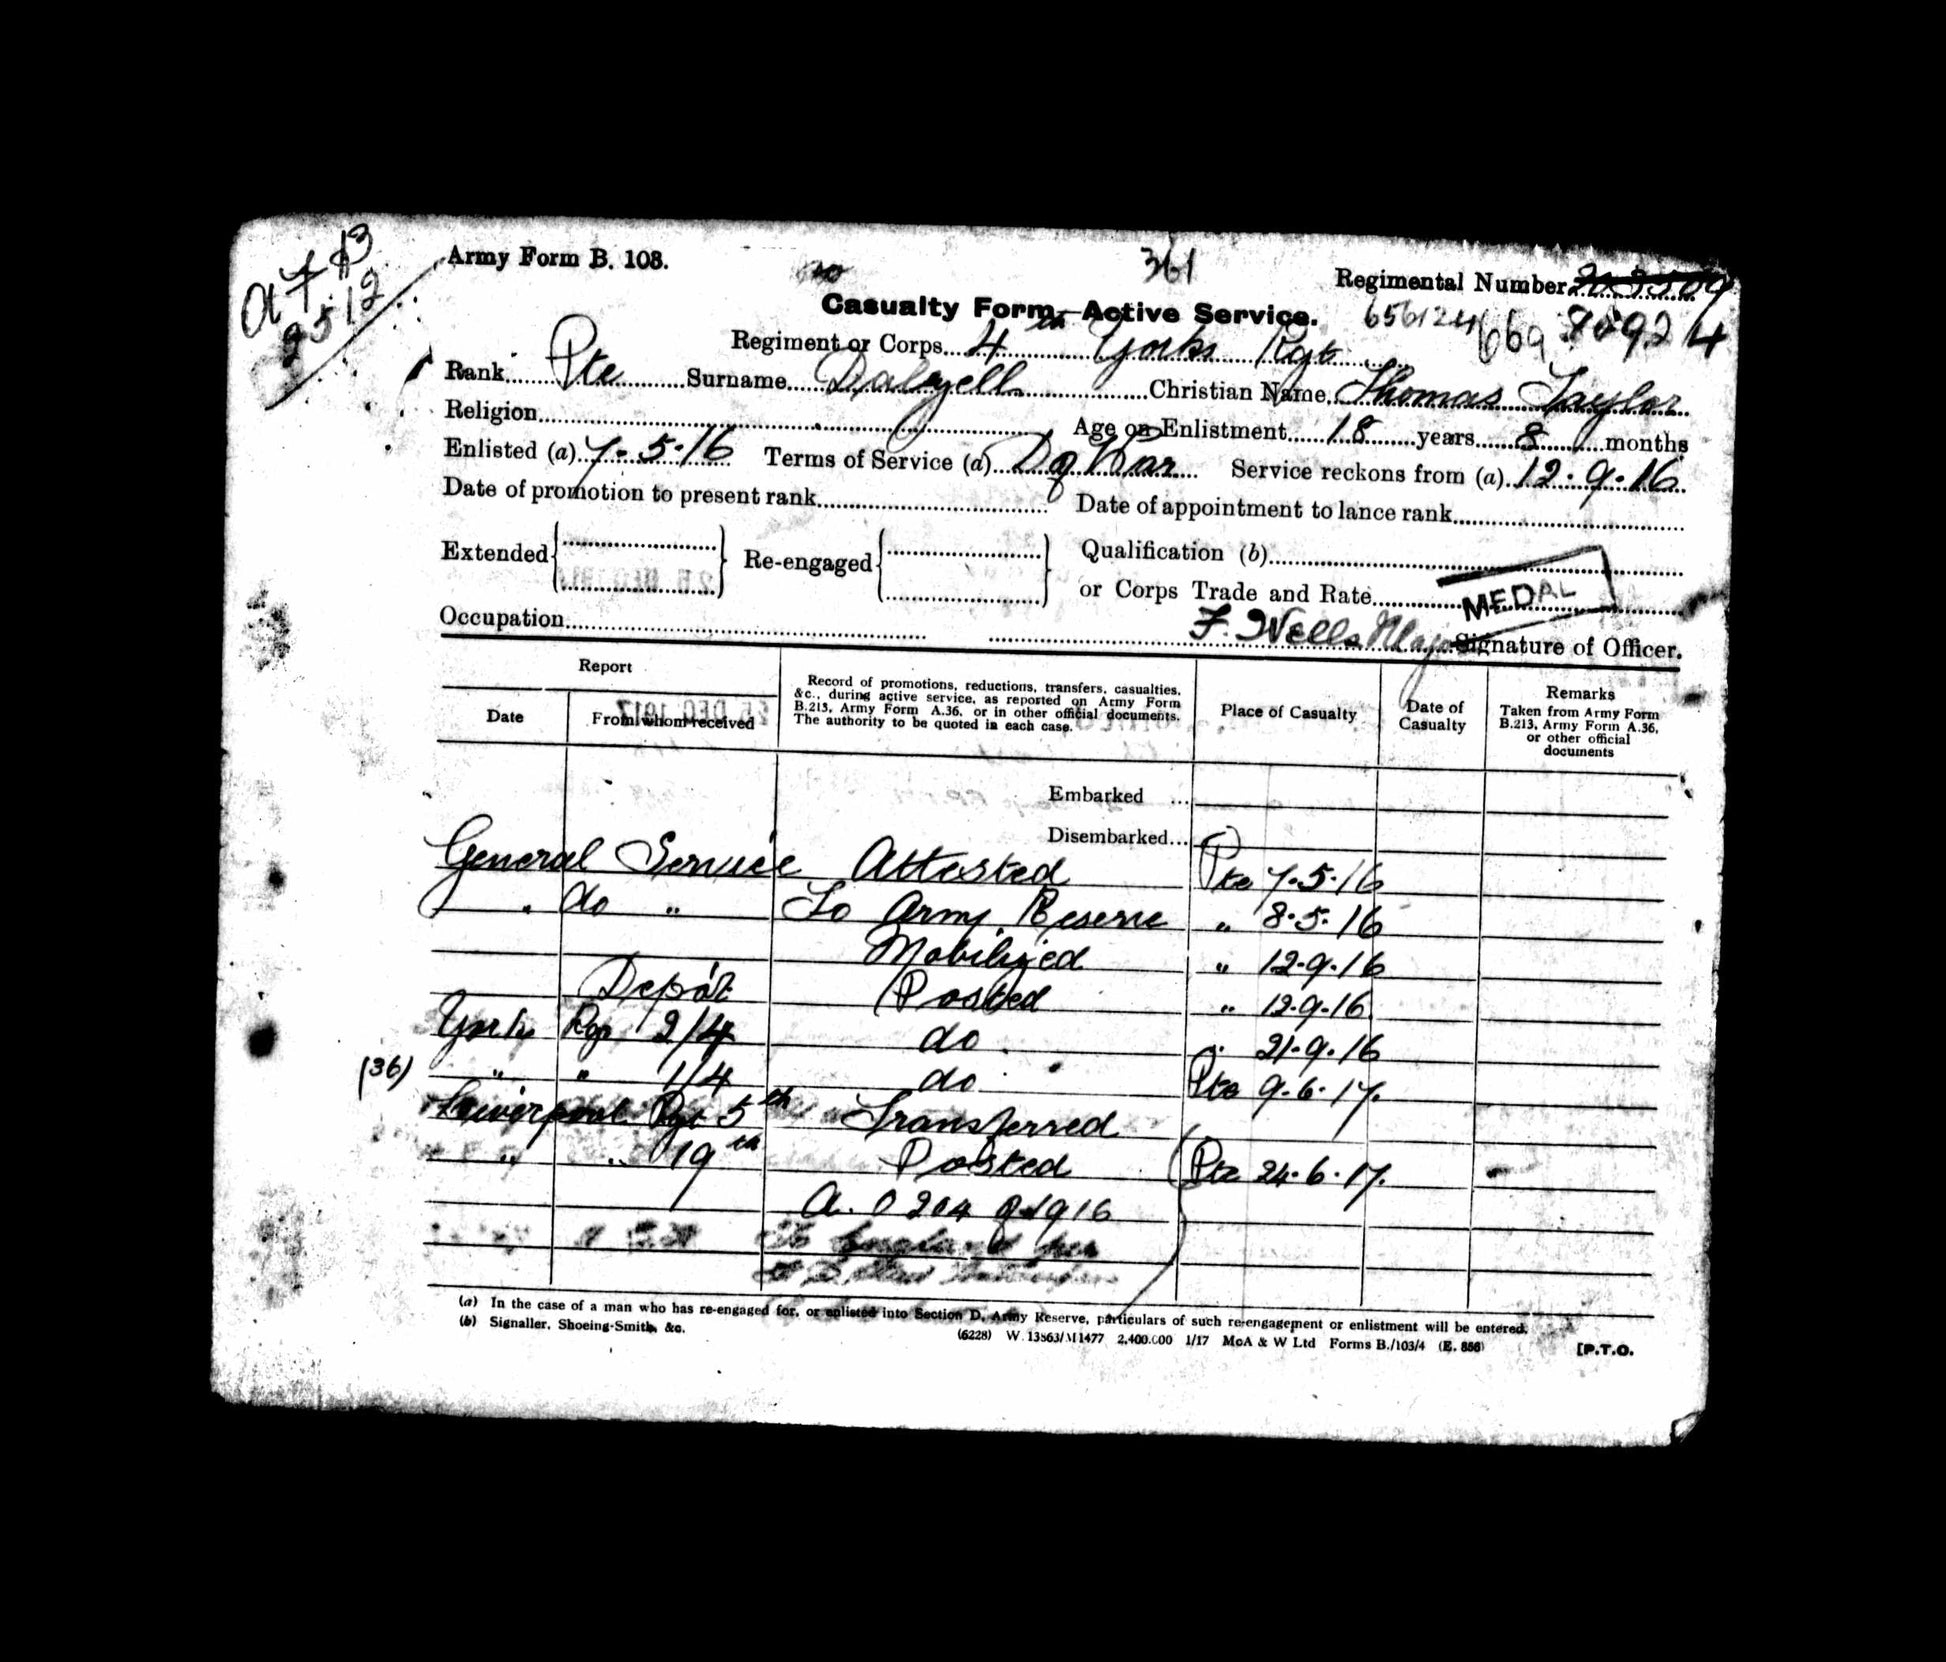 Army Form B. 103.
361
Regimental Number
Casualty Form—Active Service.
656124
Regiment or Corps 4th Yorks Rgt
Rank Pte Surname Dalzell Christian Name Thomas Taylor
Religion Age on Enlistment 18 years 8 months
Enlisted (a) 7.5.16 Terms of Service (a) D of War Service reckons from (a) 12.9.16
Date of promotion to present rank Date of appointment to lance rank
Extended Re-engaged Qualification (b)
or Corps Trade and Rate
MEDAL
Occupation F. Wells Major Signature of Officer.
Report
Date From whom received
Record of promotions, reductions, transfers, casualties, &c., during active service, as reported on Army Form B.213, Army Form A.36, or in other official documents. The authority to be quoted in each case.
Place of Casualty
Date of Casualty
Remarks
Taken from Army Form B.213, Army Form A.36, or other official documents
Embarked ...
Disembarked...
General Service Attested Pte 7.5.16
" do " To Army Reserve " 8.5.16
Mobilized " 12.9.16
Depôt Posted " 12.9.16
York Rgt 2/4 do " 21.9.16
(36) " " 1/4 do Pte 9.6.17.
Liverpool Rgt 5th Transferred
" " 19th Posted Pte 24.6.17.
A.O 204 of 1916
To England per
(a) In the case of a man who has re-engaged for, or enlisted into Section D, Army Reserve, particulars of such re-engagement or enlistment will be entered.
(b) Signaller, Shoeing-Smith, &c.
(6228) W.13563/M1477 2,400,000 1/17 McA & W Ltd Forms B./103/4 (E. 856)
[P.T.O.